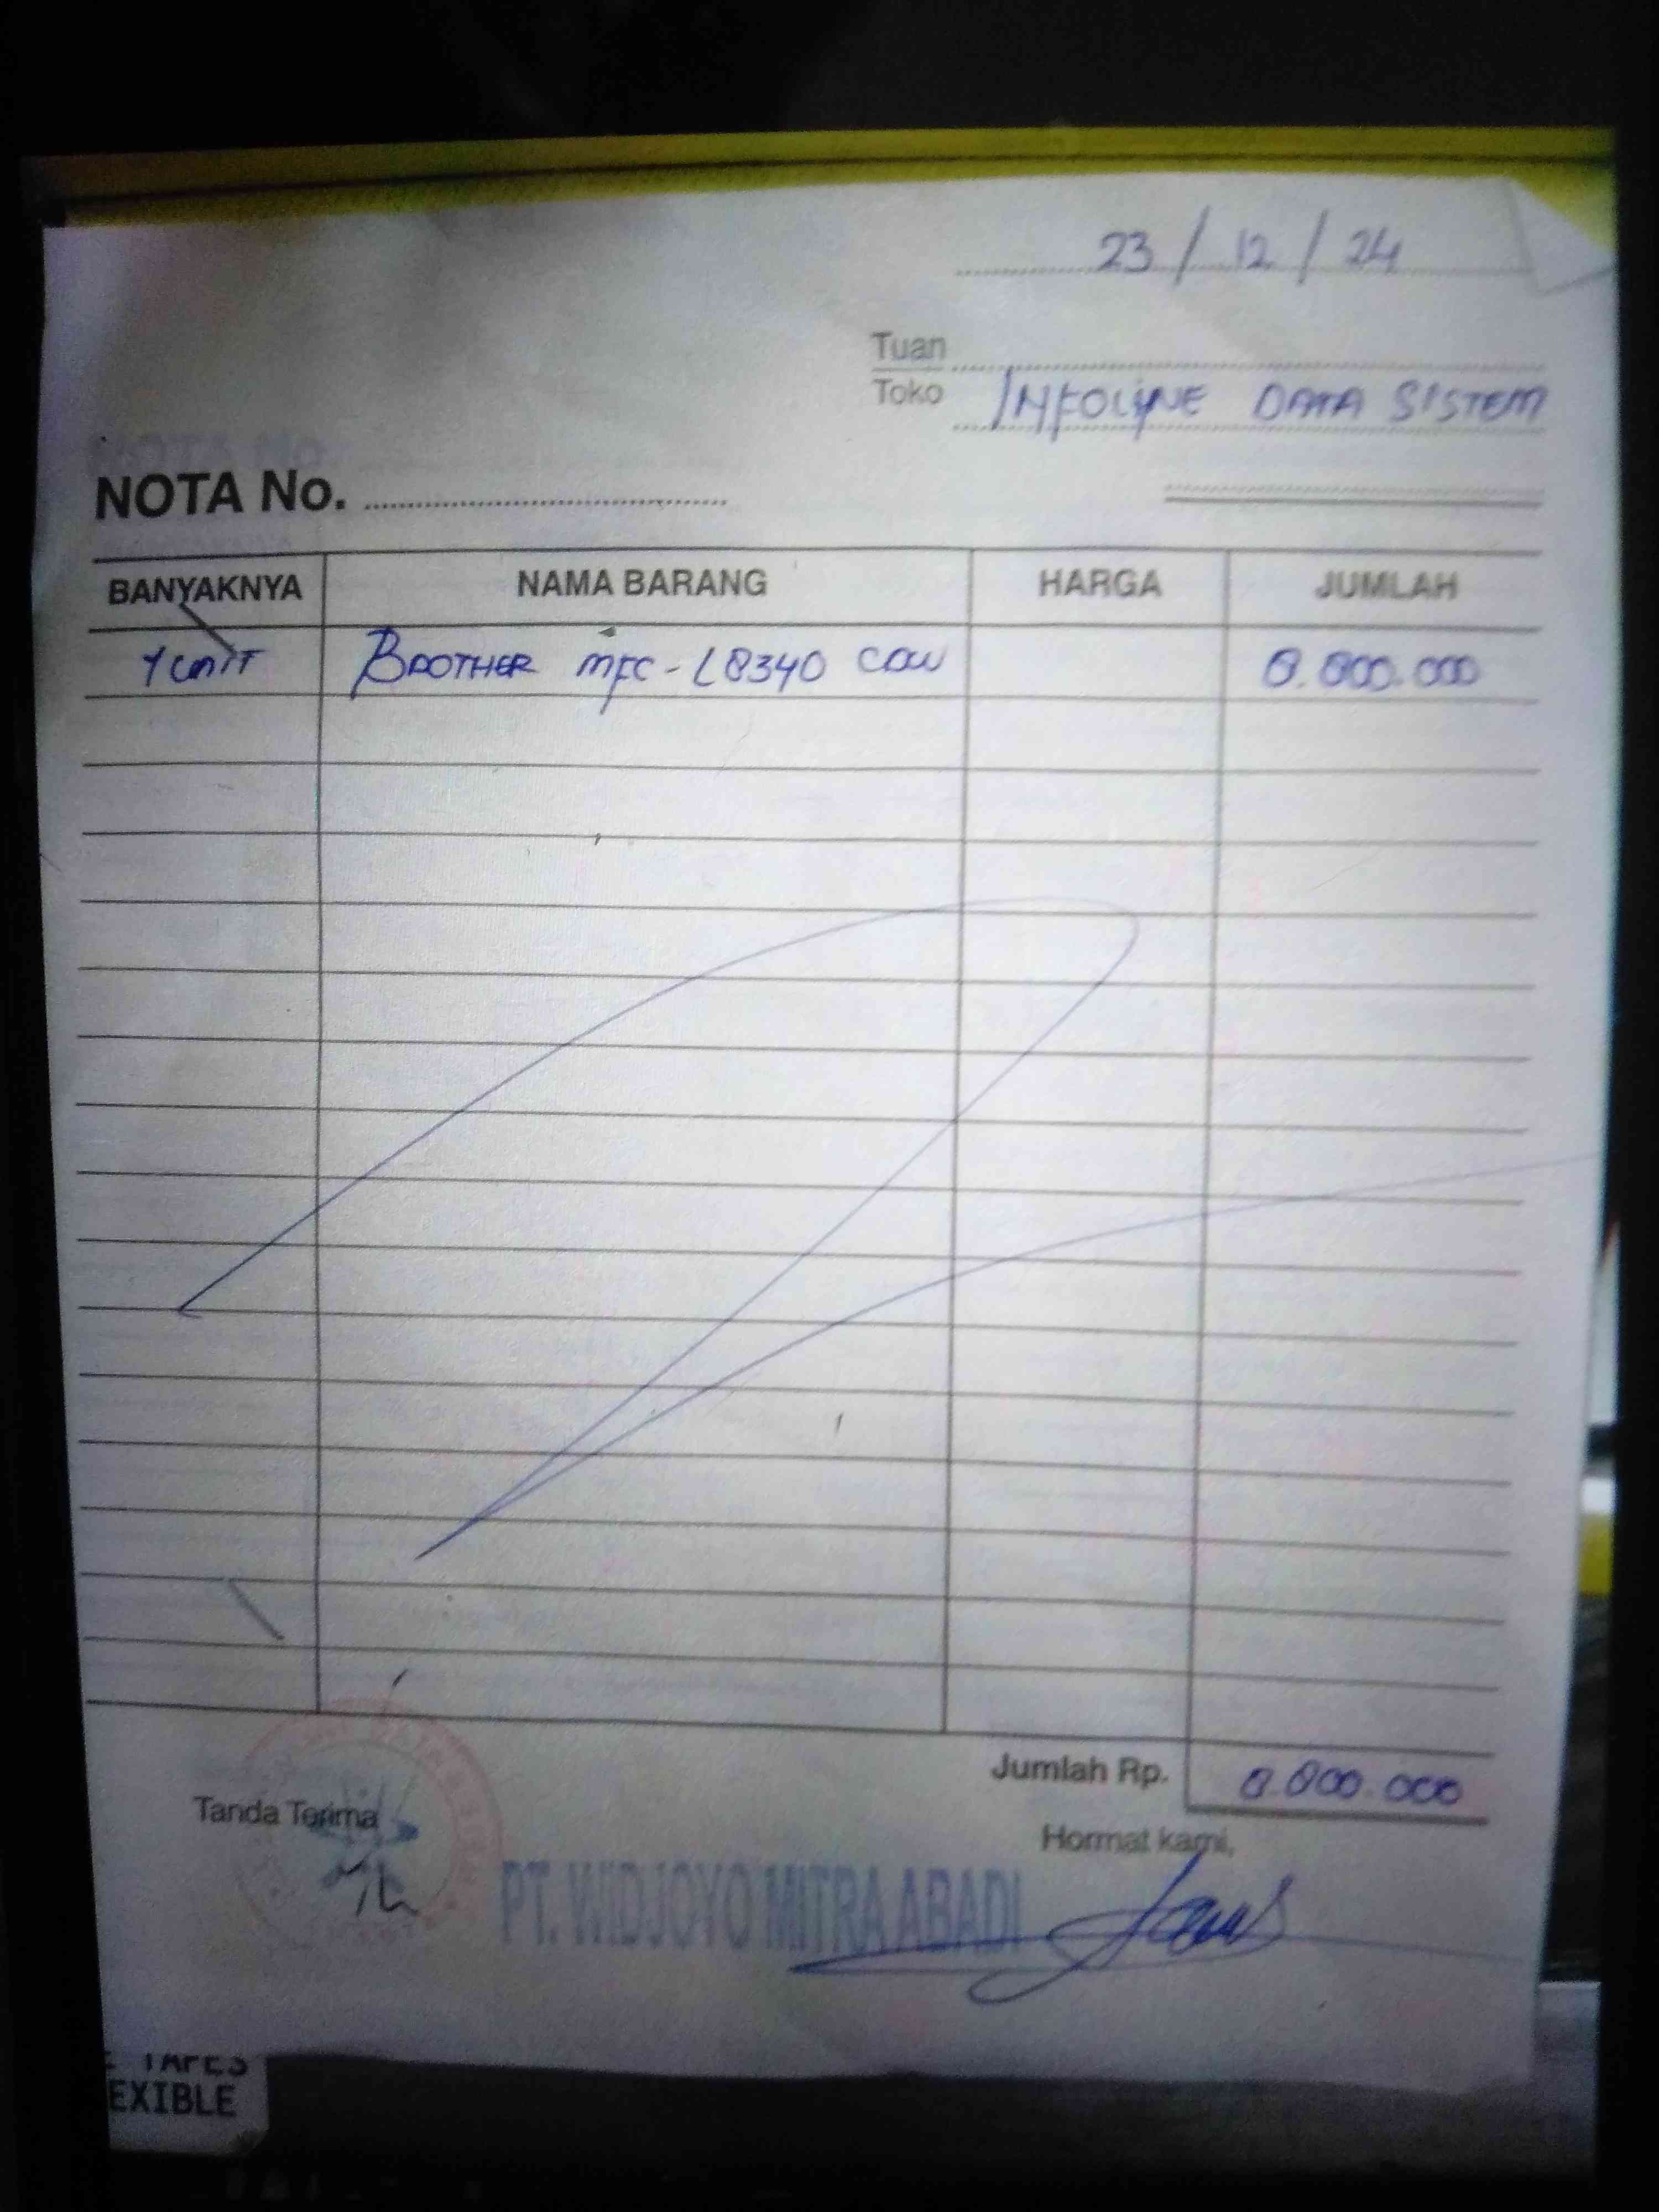 23 / 12 / 24
Tuan
Toko INFOLYNE DATA SISTEM
NOTA No.
BANYAKNYA NAMA BARANG HARGA JUMLAH
1 UNIT BROTHER MFC-L8340 CDW 8.800.000
Jumlah Rp. 8.800.000
Tanda Terima
Hormat kami,
PT. WIDJOYO MITRA ABADI
TAPES
EXIBLE